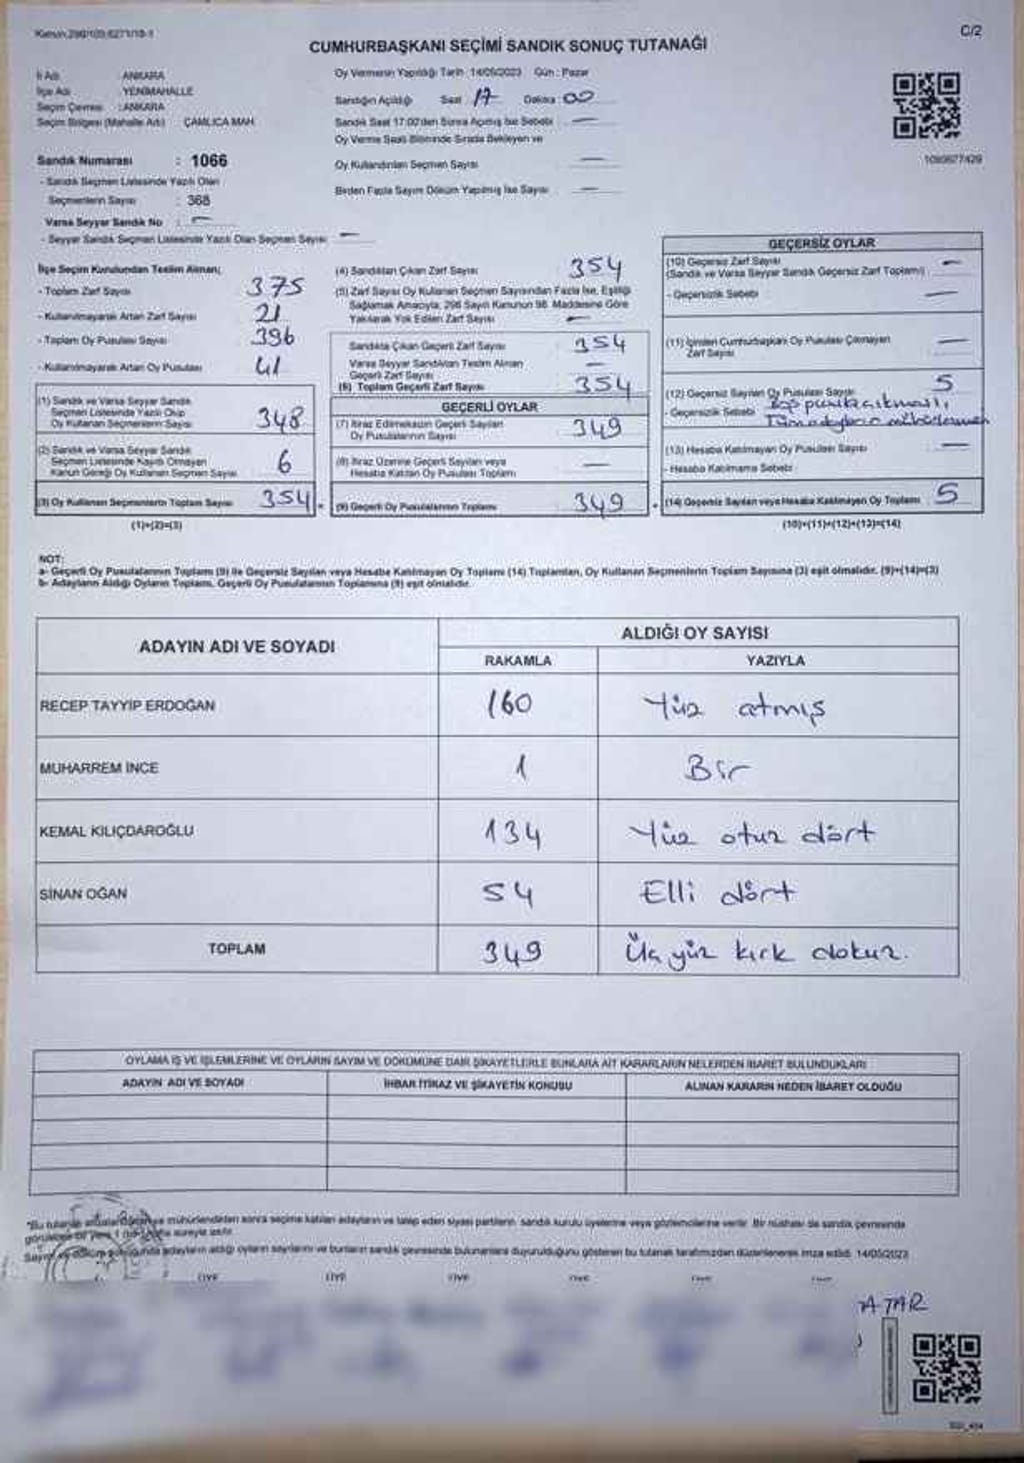 Kanun:298/103,6271/18-1
C/2
CUMHURBAŞKANI SEÇİMİ SANDIK SONUÇ TUTANAĞI
İl Adı : ANKARA
İlçe Adı : YENİMAHALLE
Seçim Çevresi : ANKARA
Seçim Bölgesi (Mahalle Adı) ÇAMLICA MAH.
Oy Vermenin Yapıldığı Tarih : 14/05/2023 Gün : Pazar
Sandığın Açıldığı Saat : 17 Dakika : 00
Sandık Saat 17:00'den Sonra Açılmış İse Sebebi : —
Oy Verme Saati Bitiminde Sırada Bekleyen ve
Oy Kullandırılan Seçmen Sayısı —
Birden Fazla Sayım Döküm Yapılmış İse Sayısı : —
1080677429
Sandık Numarası : 1066
- Sandık Seçmen Listesinde Yazılı Olan
Seçmenlerin Sayısı : 368
Varsa Seyyar Sandık No : —
- Seyyar Sandık Seçmen Listesinde Yazılı Olan Seçmen Sayısı —
İlçe Seçim Kurulundan Teslim Alınan;
- Toplam Zarf Sayısı 375
- Kullanılmayarak Artan Zarf Sayısı 21
- Toplam Oy Pusulası Sayısı 396
- Kullanılmayarak Artan Oy Pusulası 41
(1) Sandık ve Varsa Seyyar Sandık
Seçmen Listesinde Yazılı Olup
Oy Kullanan Seçmenlerin Sayısı 348
(2) Sandık ve Varsa Seyyar Sandık
Seçmen Listesinde Kayıtlı Olmayan
Kanun Gereği Oy Kullanan Seçmen Sayısı 6
(3) Oy Kullanan Seçmenlerin Toplam Sayısı 354
(1)+(2)=(3)
(4) Sandıktan Çıkan Zarf Sayısı 354
(5) Zarf Sayısı Oy Kullanan Seçmen Sayısından Fazla İse, Eşitliği
Sağlamak Amacıyla, 298 Sayılı Kanunun 98. Maddesine Göre
Yakılarak Yok Edilen Zarf Sayısı —
Sandıkta Çıkan Geçerli Zarf Sayısı 354
Varsa Seyyar Sandıktan Teslim Alınan
Geçerli Zarf Sayısı —
(6) Toplam Geçerli Zarf Sayısı 354
GEÇERLİ OYLAR
(7) İtiraz Edilmeksizin Geçerli Sayılan
Oy Pusulalarının Sayısı 349
(8) İtiraz Üzerine Geçerli Sayılan veya
Hesaba Katılan Oy Pusulası Toplamı —
(9) Geçerli Oy Pusulalarının Toplamı 349
GEÇERSİZ OYLAR
(10) Geçersiz Zarf Sayısı —
(Sandık ve Varsa Seyyar Sandık Geçersiz Zarf Toplamı)
- Geçersizlik Sebebi —
(11) İçinden Cumhurbaşkanı Oy Pusulası Çıkmayan
Zarf Sayısı —
(12) Geçersiz Sayılan Oy Pusulası Sayısı 5
- Geçersizlik Sebebi Boş pusula çıkması,
Tüm adayların mühürlenmesi
(13) Hesaba Katılmayan Oy Pusulası Sayısı —
- Hesaba Katılmama Sebebi
(14) Geçersiz Sayılan veya Hesaba Katılmayan Oy Toplamı 5
(10)+(11)+(12)+(13)=(14)
NOT:
a- Geçerli Oy Pusulalarının Toplamı (9) ile Geçersiz Sayılan veya Hesaba Katılmayan Oy Toplamı (14) Toplamları, Oy Kullanan Seçmenlerin Toplam Sayısına (3) eşit olmalıdır. (9)+(14)=(3)
b- Adayların Aldığı Oyların Toplamı, Geçerli Oy Pusulalarının Toplamına (9) eşit olmalıdır.
ADAYIN ADI VE SOYADI
ALDIĞI OY SAYISI
RAKAMLA YAZIYLA
RECEP TAYYİP ERDOĞAN 160 Yüz atmış
MUHARREM İNCE 1 Bir
KEMAL KILIÇDAROĞLU 134 Yüz otuz dört
SİNAN OĞAN 54 Elli dört
TOPLAM 349 Üçyüz kırk dokuz.
OYLAMA İŞ VE İŞLEMLERİNE VE OYLARIN SAYIM VE DÖKÜMÜNE DAİR ŞİKAYETLERLE BUNLARA AİT KARARLARIN NELERDEN İBARET BULUNDUKLARI
ADAYIN ADI VE SOYADI İHBAR İTİRAZ VE ŞİKAYETİN KONUSU ALINAN KARARIN NEDEN İBARET OLDUĞU
*Bu tutanak imzalandıktan ve mühürlendikten sonra seçime katılan adayların ve talep eden siyasi partilerin sandık kurulu üyelerine veya gözlemcilerine verilir. Bir nüshası da sandık çevresinde
görülebilir bir yere 1 süreyle asılır.
Sayım ve döküm sonucunda adayların aldığı oyların sayılarını ve bunların sandık çevresinde bulunanlara duyurulduğunu gösteren bu tutanak tarafımızdan düzenlenerek imza edildi. 14/05/2023
ÜYE ÜYE ÜYE ÜYE ÜYE ÜYE
ATAR